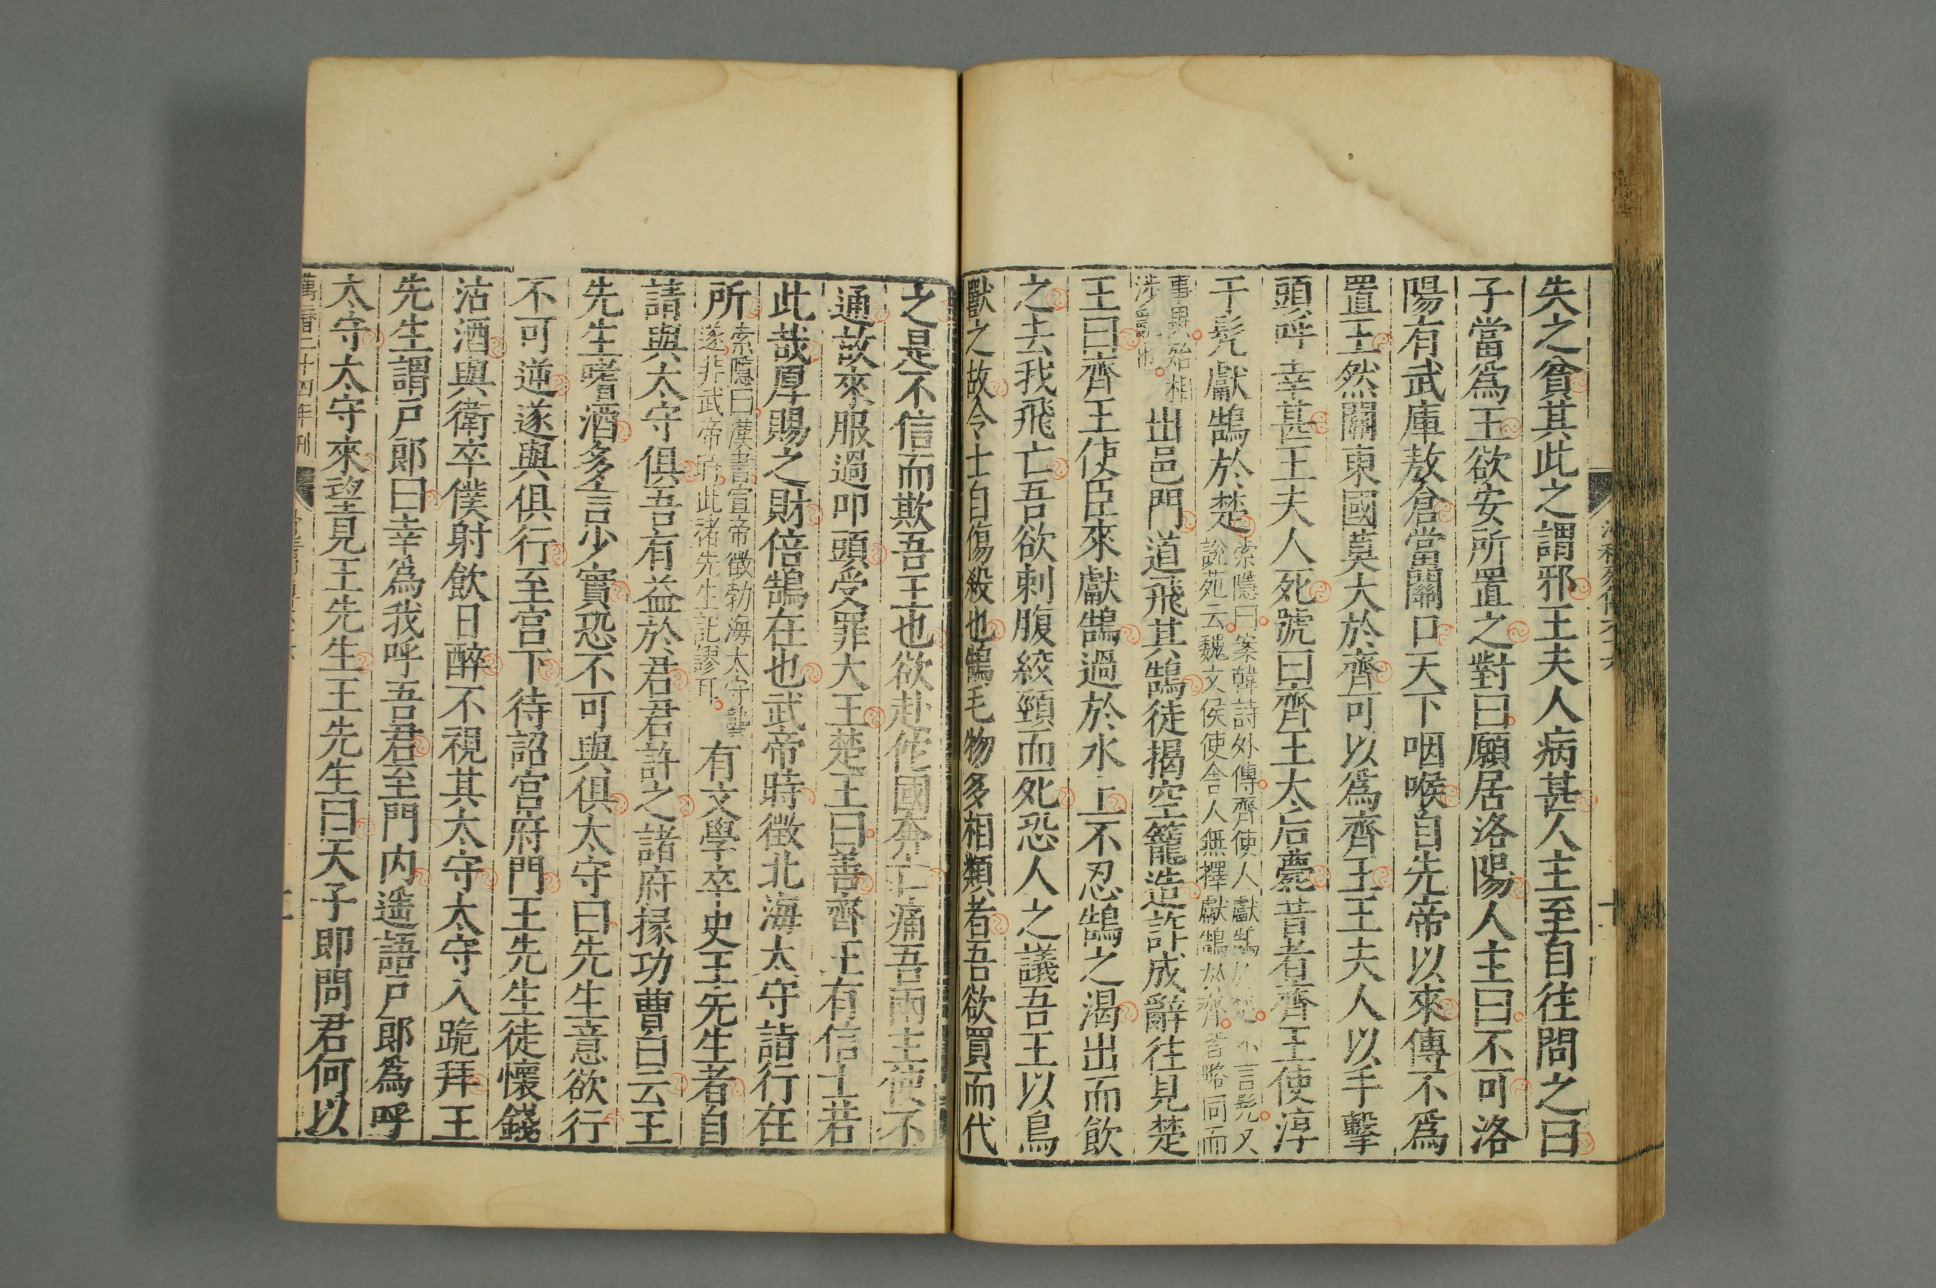 失之貧其此之謂邪王夫人病甚人主至自往問之曰
子當爲王欲安所置之對曰願居洛陽人主曰不可洛
陽有武庫敖倉當關口天下咽喉自先帝以來傳不爲
置王然關東國莫大於齊可以爲齊王王夫人以手擊
頭呼幸甚王夫人死號曰齊王太后薨昔者齊王使淳
于髡獻鵠於楚索隱曰案韓詩外傳齊使人獻鵠於楚不言髡又
說苑云魏文侯使舍人無擇獻鵠於齊皆略同而
事異殆相
涉亂也出邑門道飛其鵠徒揭空籠造詐成辭往見楚
王曰齊王使臣來獻鵠過於水上不忍鵠之渴出而飲
之去我飛亡吾欲刺腹絞頸而死恐人之議吾王以鳥
獸之故令士自傷殺也鵠毛物多相類者吾欲買而代
之是不信而欺吾王也欲赴佗國奔亡痛吾兩主使不
通故來服過叩頭受罪大王楚王曰善齊王有信士若
此哉厚賜之財倍鵠在也武帝時徵北海太守詣行在
所索隱曰漢書宣帝徵勃海太守龔
遂非武帝時此褚先生記謬耳有文學卒史王先生者自
請與太守俱吾有益於君君許之諸府掾功曹白云王
先生嗜酒多言少實恐不可與俱太守曰先生意欲行
不可逆遂與俱行至宮下待詔宮府門王先生徒懷錢
沽酒與衛卒僕射飲日醉不視其太守太守入跪拜王
先生謂戶郎曰幸爲我呼吾君至門內遥語戶郎爲呼
太守太守來望見王先生王先生曰天子即問君何以
萬曆二十四年刊